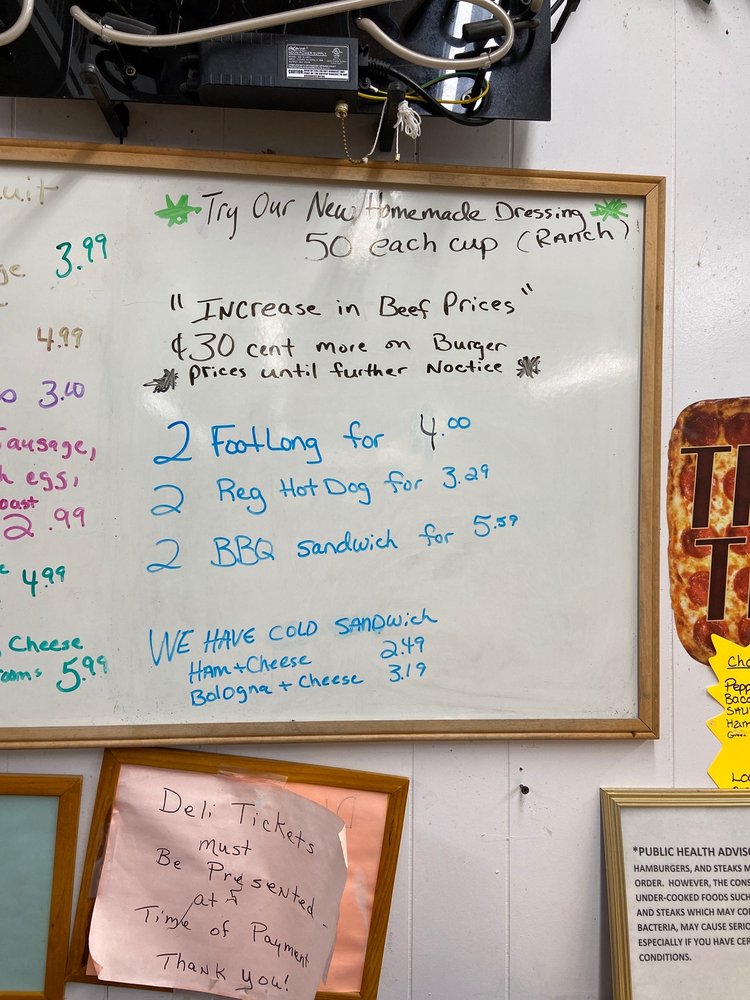 Try Our New Homemade Dressing
50 each cup (Ranch)
"Increase in Beef Prices"
¢30 cent more on Burger
prices until further Noctice
2 FootLong for 4.00
2 Reg HotDog for 3.29
2 BBQ sandwich for 5.59
WE HAVE COLD SANDWich
Ham+Cheese 2.49
Bologna + Cheese 3.19
3.99
4.99
3.00
Sausage,
egg,
2.99
4.99
Cheese
5.99
Deli Tickets
must
Be Presented
at
Time of Payment
Thank you!
CAUTION
*PUBLIC HEALTH ADVISO
HAMBURGERS, AND STEAKS M
ORDER. HOWEVER, THE CONS
UNDER-COOKED FOODS SUCH
AND STEAKS WHICH MAY CO
BACTERIA, MAY CAUSE SERIO
ESPECIALLY IF YOU HAVE CER
CONDITIONS.